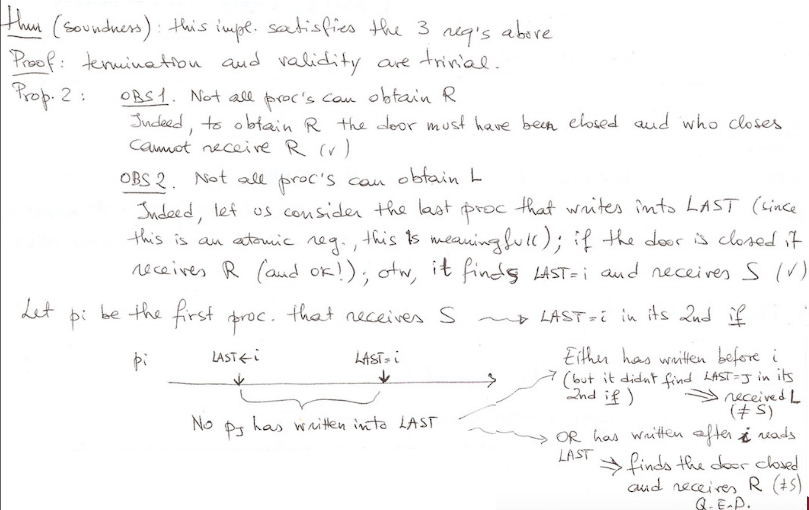 Thm (soundness): this impl. satisfies the 3 req's above
Proof: termination and validity are trivial.
Prop. 2: OBS 1. Not all proc's can obtain R
Indeed, to obtain R the door must have been closed and who closes
cannot receive R (√)
OBS 2. Not all proc's can obtain L
Indeed, let us consider the last proc that writes into LAST (since
this is an atomic reg., this is meaningfull); if the door is closed it
receives R (and ok!); otw, it finds LAST=i and receives S (√)
Let pi be the first proc. that receives S ⇝ LAST=i in its 2nd if
pi LAST←i LAST=i
No pj has written into LAST
Either has written before i
(but it didnt find LAST=J in its
2nd if) ⇒ received L
(≠S)
OR has written after i reads
LAST ⇒ finds the door closed
and receives R (≠S)
Q.E.D.